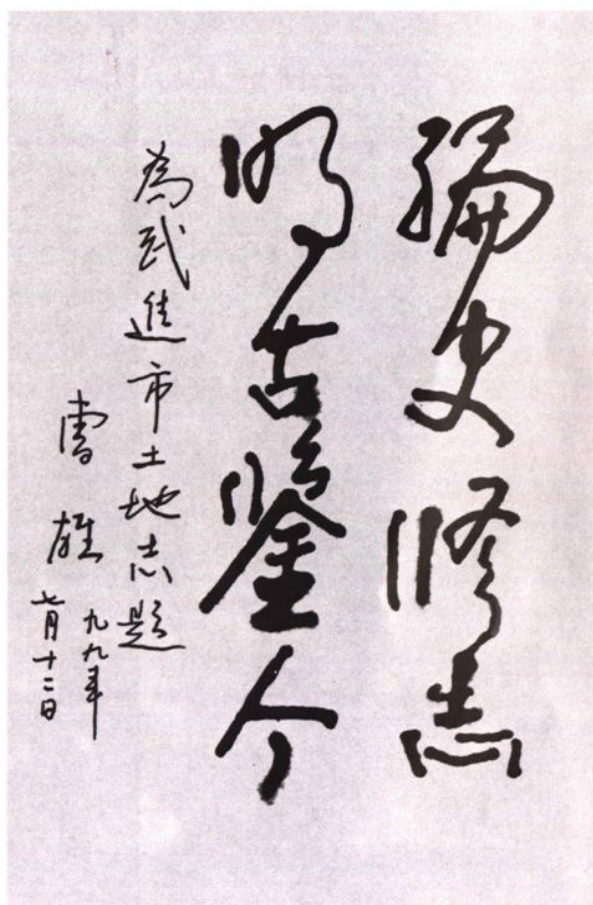 编史修志
明古鉴今
为武進市土地志题
曹雄
九九年
七月十二日